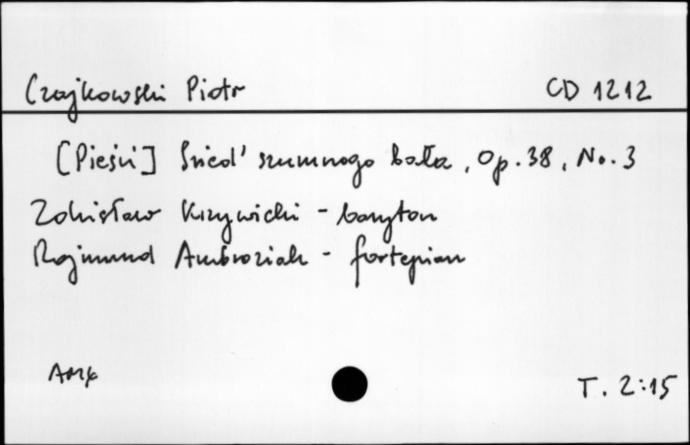 Czajkowski Piotr CD 1212
[Pieśni] Sried' szumnogo bała, Op. 38, No. 3
Zdzisław Krzywicki - baryton
Rajmund Ambroziak - fortepian
T. 2:15